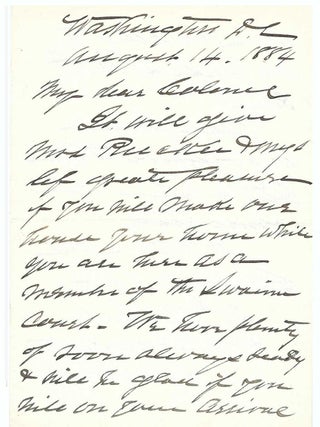 Washington D.C
August 14. 1884
My dear Colonel
It will give
Mrs Rucker & myse
lef great pleasure
if you will make our
house your home while
you are here as a
member of the Swaim
Court - We have plenty
of room always ready
& will be glad if you
will on your arrival